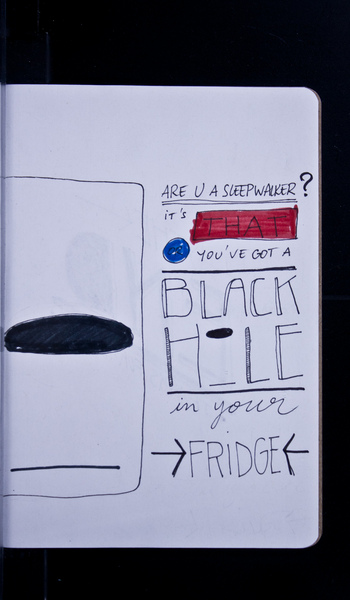 ARE U A SLEEPWALKER?
iT'S THAT
YOU'VE GOT A
BLACK
HOLE
in your
FRiDGE